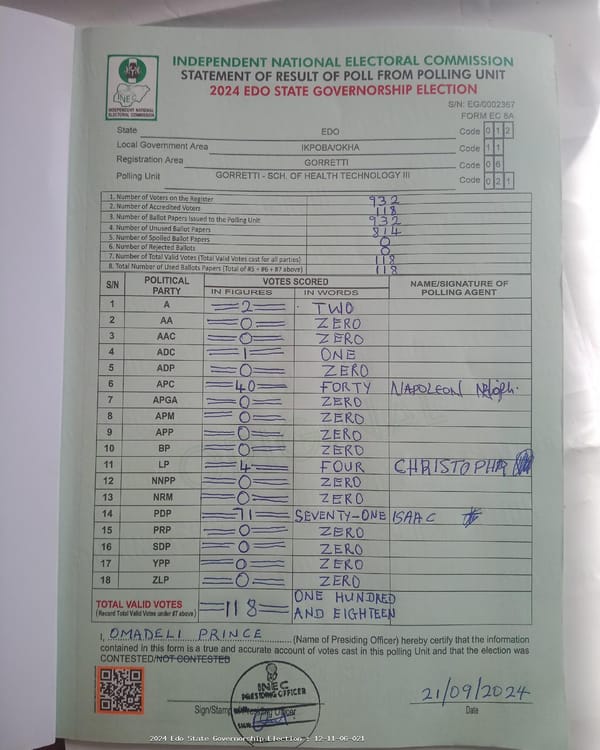 INDEPENDENT NATIONAL ELECTORAL COMMISSION
STATEMENT OF RESULT OF POLL FROM POLLING UNIT
2024 EDO STATE GOVERNORSHIP ELECTION
INEC
INDEPENDENT NATIONAL
ELECTORAL COMMISSION
S/N: EG/0002367
FORM EC 8A
State EDO Code 0 1 2
Local Government Area IKPOBA/OKHA Code 1 1
Registration Area GORRETTI Code 0 6
Polling Unit GORRETTI - SCH. OF HEALTH TECHNOLOGY III Code 0 2 1
1. Number of Voters on the Register 932
2. Number of Accredited Voters 118
3. Number of Ballot Papers Issued to the Polling Unit 932
4. Number of Unused Ballot Papers 814
5. Number of Spoiled Ballot Papers 0
6. Number of Rejected Ballots 0
7. Number of Total Valid Votes (Total Valid Votes cast for all parties) 118
8. Total Number of Used Ballots Papers (Total of #5 + #6 + #7 above) 118
S/N POLITICAL PARTY VOTES SCORED NAME/SIGNATURE OF POLLING AGENT
IN FIGURES IN WORDS
1 A =2= TWO
2 AA =0= ZERO
3 AAC =0= ZERO
4 ADC =1= ONE
5 ADP =0= ZERO
6 APC =40= FORTY NAPOLEON
7 APGA =0= ZERO
8 APM =0= ZERO
9 APP =0= ZERO
10 BP =0= ZERO
11 LP =4= FOUR CHRISTOPHER
12 NNPP =0= ZERO
13 NRM =0= ZERO
14 PDP =71= SEVENTY-ONE ISAAC
15 PRP =0= ZERO
16 SDP =0= ZERO
17 YPP =0= ZERO
18 ZLP =0= ZERO
TOTAL VALID VOTES =118= ONE HUNDRED
(Record Total Valid Votes under #7 above) AND EIGHTEEN
I, OMADELI PRINCE (Name of Presiding Officer) hereby certify that the information
contained in this form is a true and accurate account of votes cast in this polling Unit and that the election was
CONTESTED/NOT CONTESTED
INEC
PRESIDING OFFICER
SIGN
Sign/Stamp Officer
21/09/2024
Date
2024 Edo State Governorship Election : 12-11-06-021